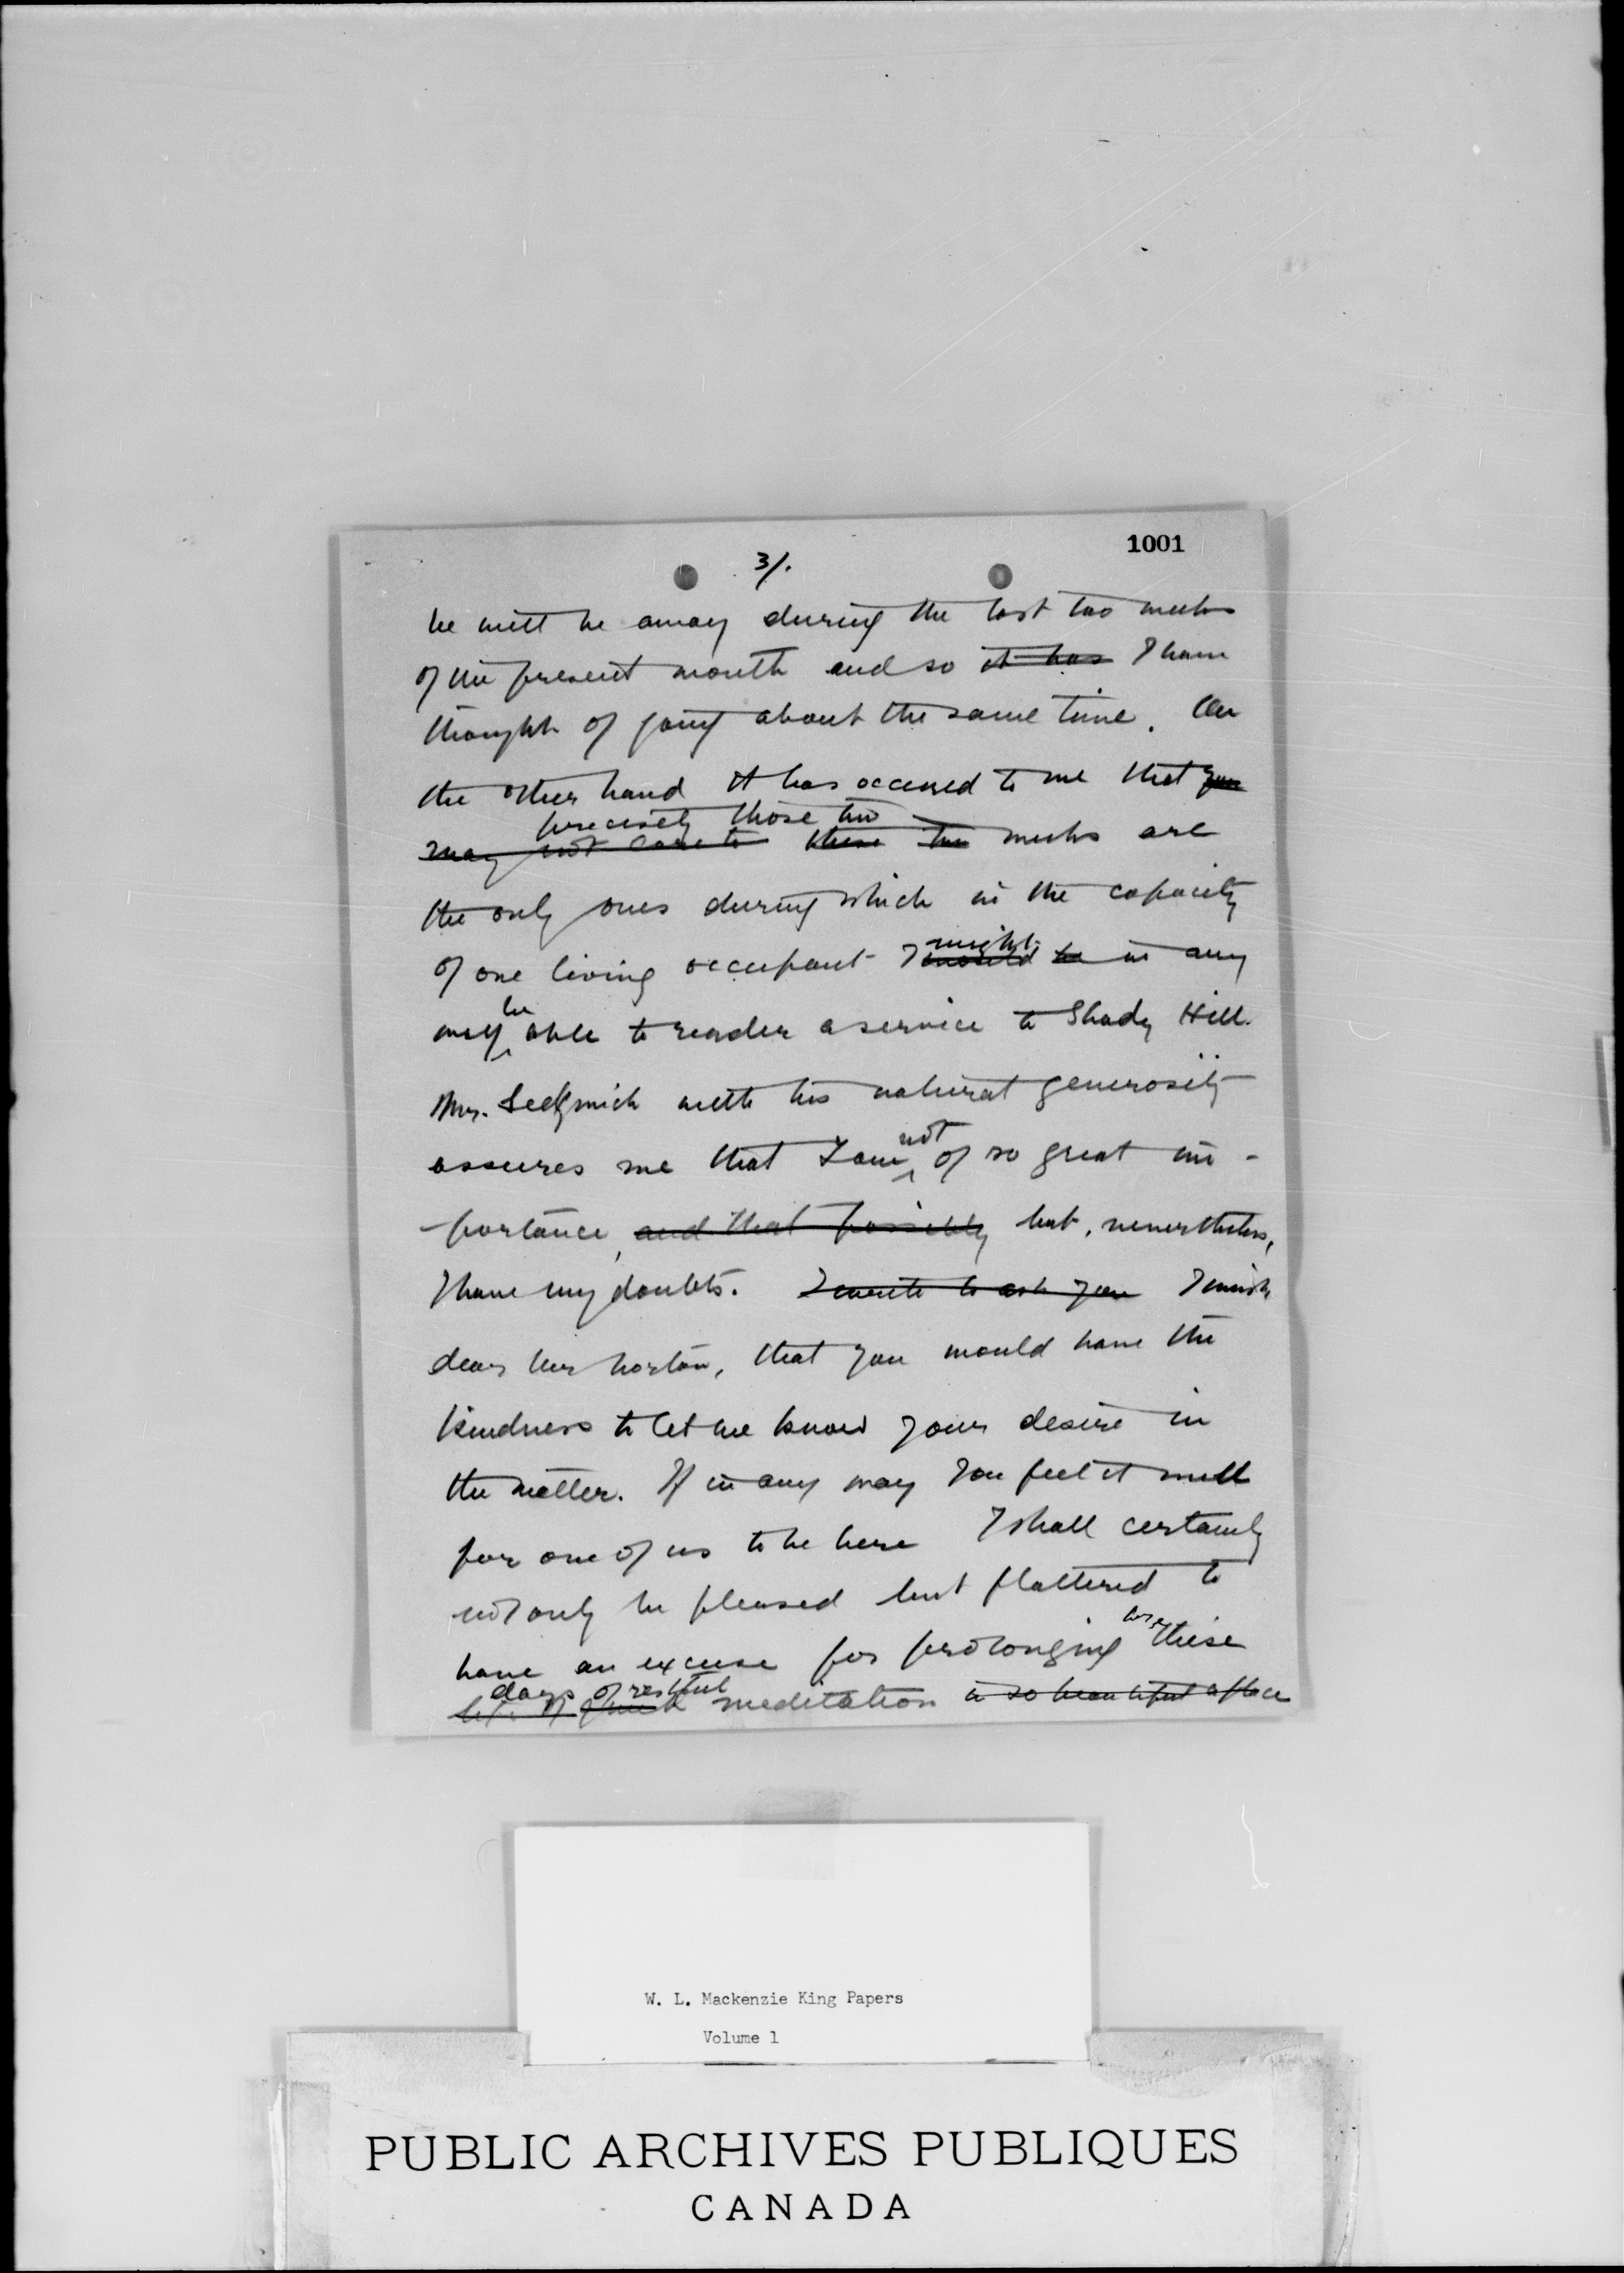 1001
3/.
he will be away during the last two weeks
of the present month and so it has I have
thought of going about the same time. On
the other hand it has occured to me that you
precisely those two
may not care to these two weeks are
the only ones during which in the capacity
of one living occupant I would be in any
might
way able to render a service to Shady Hill.
be
Mr. Sedgwick with his natural generosity
assures me that I am of so great im-
not
-portance, and that possibly but, nevertheless,
I have my doubts. I write to ask you I wish,
dear Mr Norton, that you would have the
kindness to let me know your desire in
the matter. If in any way you feel it well
for one of us to be here I shall certainly
not only be pleased but flattered to
have an excuse for prolonging these
here
days of restful
life of quiet meditation in so beautiful a place
W. L. Mackenzie King Papers
Volume 1
PUBLIC ARCHIVES PUBLIQUES
CANADA